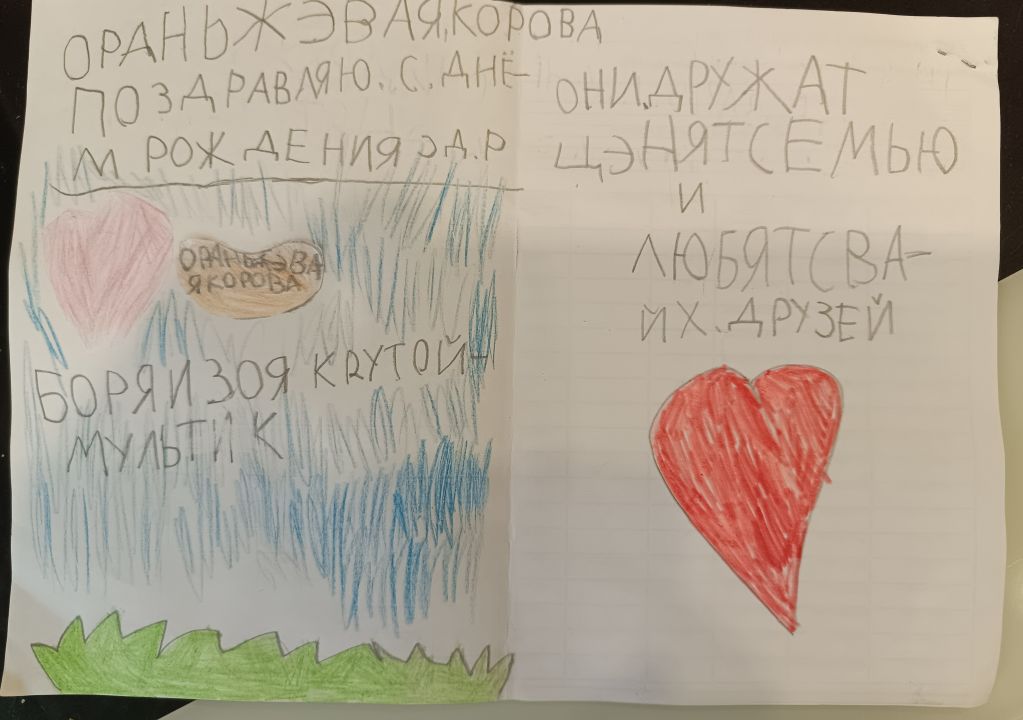 ОРАНЬЖЭВАЯ,КОРОВА
ПОЗДРАВЛЯЮ.С.ДНЁ-
М РОЖДЕНИЯ ЭД.Р
ОРАНЬЖЭВА
ЯКОРОВА
БОРЯ И ЗОЯ КРУТОЙ-
МУЛЬТИК
ОНИ.ДРУЖАТ
ЦЭНЯТ СЕМЬЮ
И
ЛЮБЯТ СВА-
ИХ.ДРУЗЕЙ